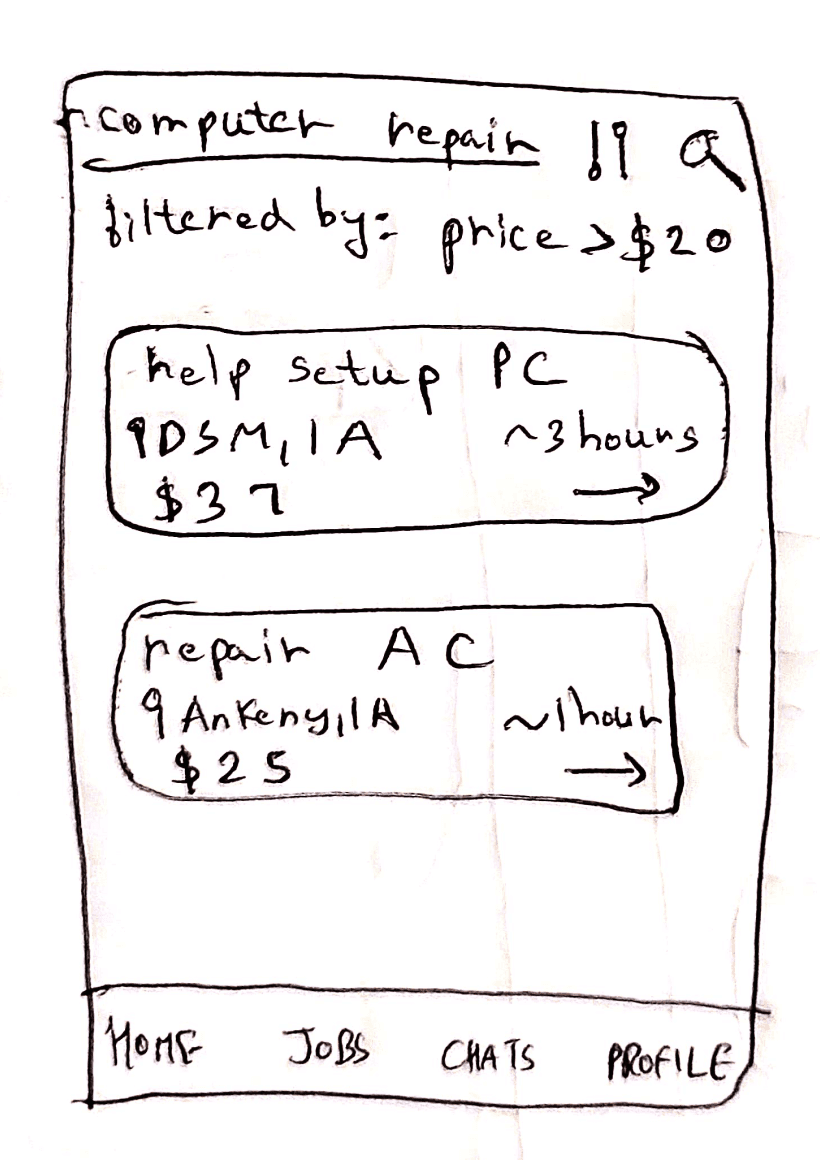 computer repair
filtered by: price > $20
help setup PC
DSM, IA ~3 hours
$37 →
repair AC
Ankeny, IA ~1 hour
$25 →
HOME JOBS CHATS PROFILE